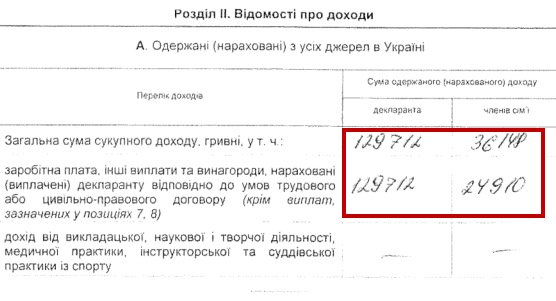 Розділ II. Відомості про доходи
А. Одержані (нараховані) з усіх джерел в Україні
Перелік доходів
Сума одержаного (нарахованого) доходу
декларанта
членів сім'ї
Загальна сума сукупного доходу, гривні, у т. ч.: 129712 36148
заробітна плата, інші виплати та винагороди, нараховані
(виплачені) декларанту відповідно до умов трудового
або цивільно-правового договору (крім виплат, 129712 24910
зазначених у позиціях 7, 8)
дохід від викладацької, наукової і творчої діяльності,
медичної практики, інструкторської та суддівської — —
практики із спорту